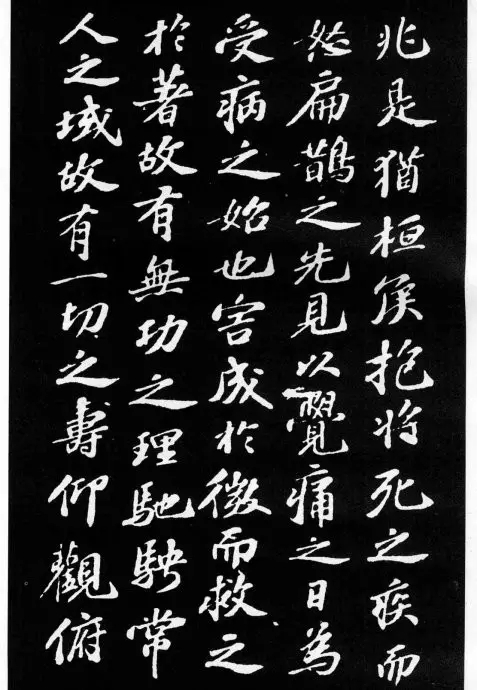 兆是猶桓侯抱將死之疾而
怒扁鵲之先見以覺痛之日為
受病之始也害成於微而救之
於著故有無功之理馳騁常
人之域故有一切之壽仰觀俯